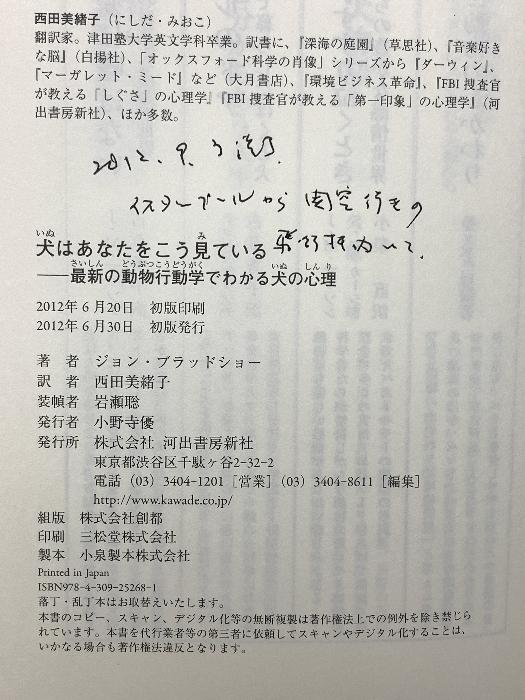 西田美緒子（にしだ・みおこ）
翻訳家。津田塾大学英文学科卒業。訳書に、『深海の庭園』（草思社）、『音楽好き
な脳』（白揚社）、「オックスフォード科学の肖像」シリーズから『ダーウィン』、
『マーガレット・ミード』など（大月書店）、『環境ビジネス革命』、『FBI捜査官
が教える「しぐさ」の心理学』『FBI捜査官が教える「第一印象」の心理学』（河
出書房新社）、ほか多数。
2012. 9. 3
イスタンブールから関空行きの
飛行機内にて.
犬はあなたをこう見ている
いぬ み
――最新の動物行動学でわかる犬の心理
さいしん どうぶつこうどうがく いぬ しんり
2012年6月20日 初版印刷
2012年6月30日 初版発行
著者 ジョン・ブラッドショー
訳者 西田美緒子
装幀者 岩瀬聡
発行者 小野寺優
発行所 株式会社 河出書房新社
東京都渋谷区千駄ヶ谷2-32-2
電話（03）3404-1201［営業］（03）3404-8611［編集］
http://www.kawade.co.jp/
組版 株式会社創都
印刷 三松堂株式会社
製本 小泉製本株式会社
Printed in Japan
ISBN978-4-309-25268-1
落丁・乱丁本はお取替えいたします。
本書のコピー、スキャン、デジタル化等の無断複製は著作権法上での例外を除き禁じら
れています。本書を代行業者等の第三者に依頼してスキャンやデジタル化することは、
いかなる場合も著作権法違反となります。